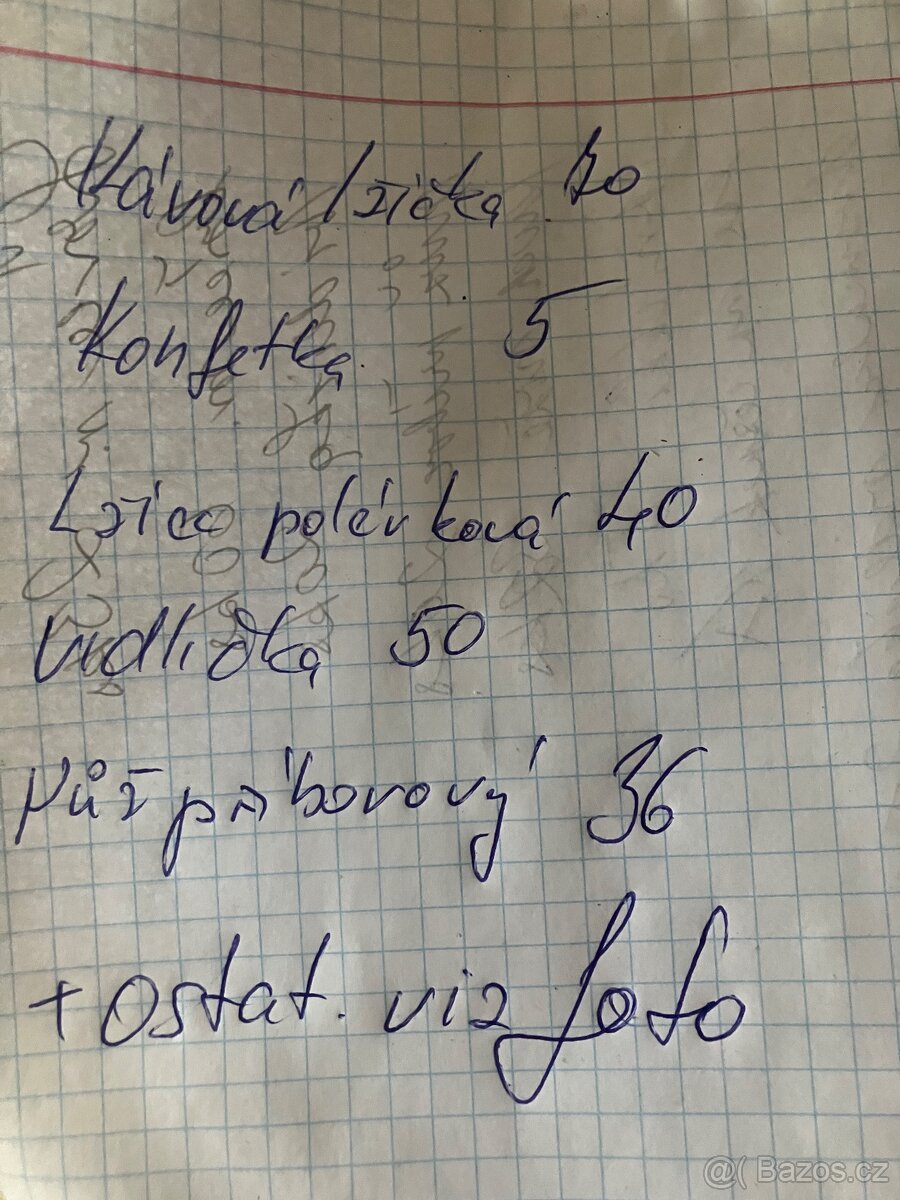 Kávová lžička 70
Konfetka 5
Lžíce polévková 40
Vidlička 50
Nůž příborový 36
+ ostat. viz foto
@( Bazos.cz